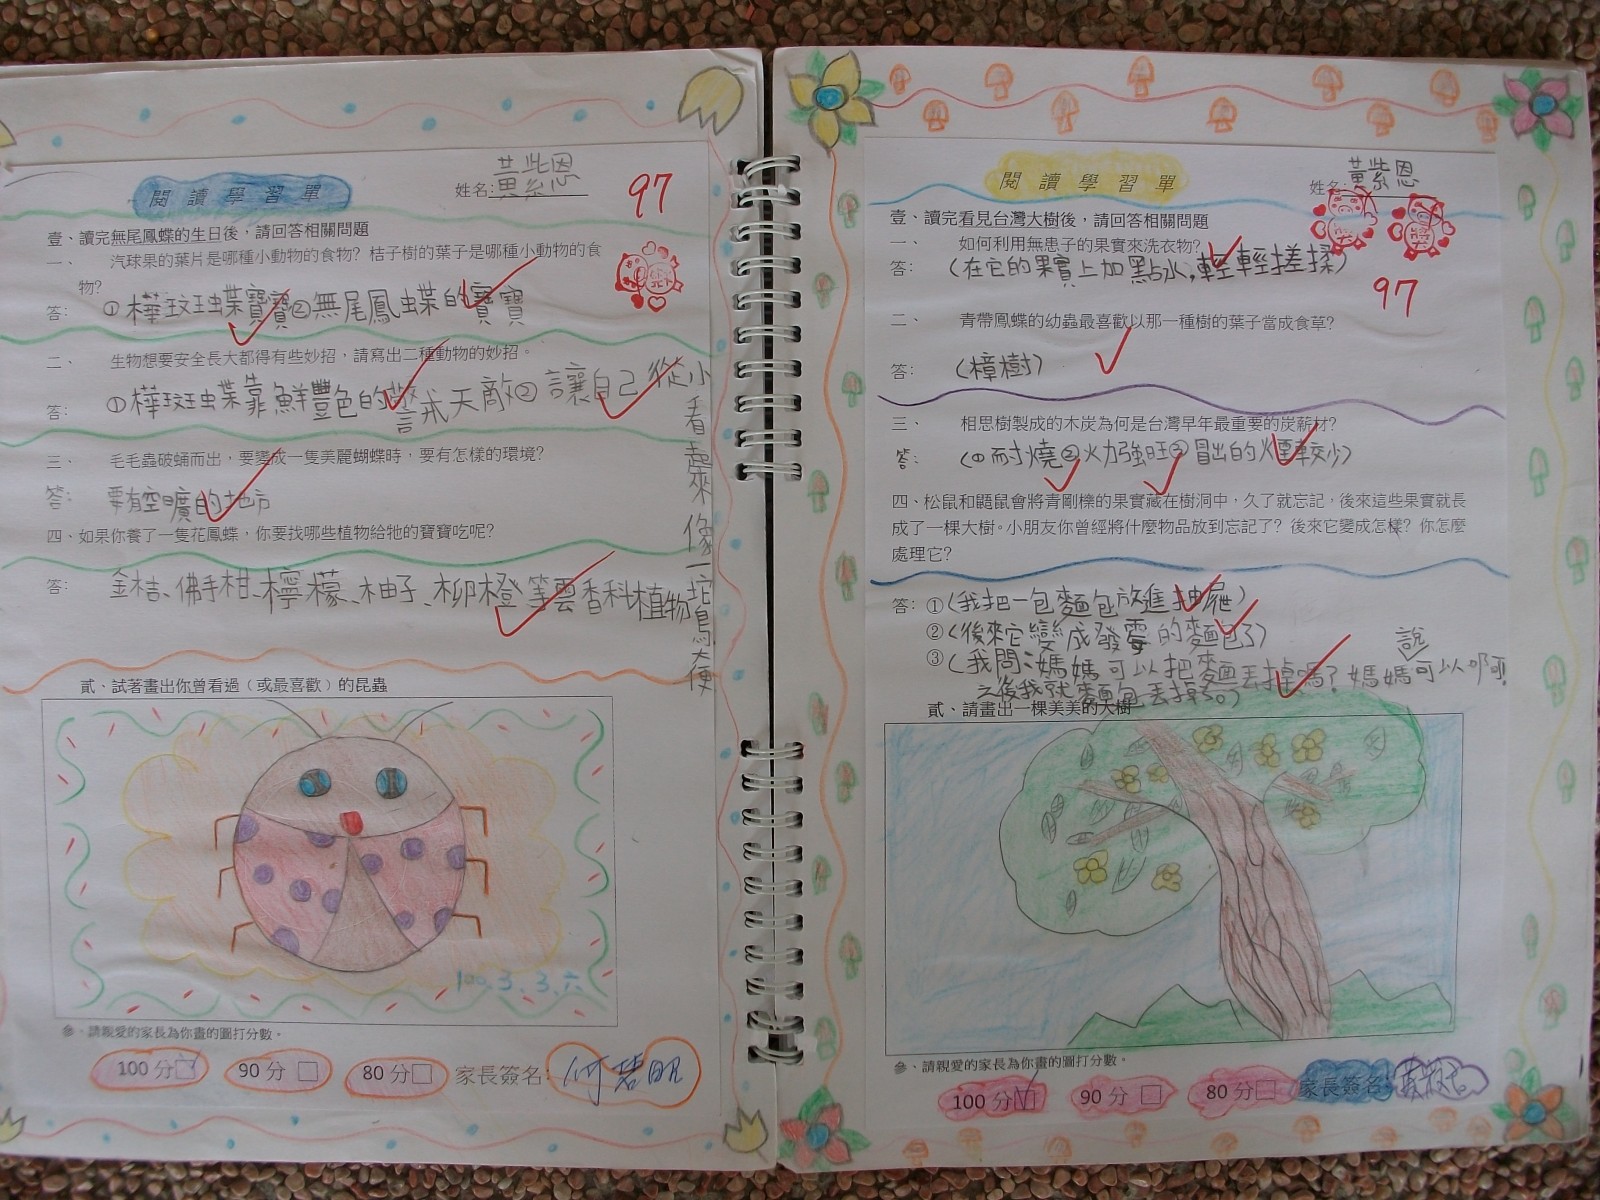 閱讀學習單
姓名:黃紫恩
97
壹、讀完無尾鳳蝶的生日後，請回答相關問題
一、 汽球果的葉片是哪種小動物的食物？桔子樹的葉子是哪種小動物的食
物？
答: ①樺斑蝶寶寶②無尾鳳蝶的寶寶
二、 生物想要安全長大都得有些妙招，請寫出二種動物的妙招。
答: ①樺斑蝶靠鮮豐色的警戒天敵②讓自己從小
看起來像一坨鳥大便
三、 毛毛蟲破蛹而出，要變成一隻美麗蝴蝶時，要有怎樣的環境？
答: 要有空曠的地方
四、如果你養了一隻花鳳蝶，你要找哪些植物給牠的寶寶吃呢？
答: 金桔、佛手柑、檸檬、柚子、柳橙等雲香科植物
貳、試著畫出你曾看過（或最喜歡）的昆蟲
100.3.3.六
參、請親愛的家長為你畫的圖打分數。
100分□ 90分□ 80分□ 家長簽名:
閱讀學習單
姓名:黃紫恩
97
壹、讀完看見台灣大樹後，請回答相關問題
一、 如何利用無患子的果實來洗衣物？
答: (在它的果實上加點水，輕輕搓揉)
二、 青帶鳳蝶的幼蟲最喜歡以那一種樹的葉子當成食草？
答: (樟樹)
三、 相思樹製成的木炭為何是台灣早年最重要的炭薪材？
答: (①耐燒②火力強旺③冒出的煙較少)
四、松鼠和鼯鼠會將青剛櫟的果實藏在樹洞中，久了就忘記，後來這些果實就長
成了一棵大樹。小朋友你曾經將什麼物品放到忘記了？後來它變成怎樣？你怎麼
處理它？
答: ①(我把一包麵包放進抽屜)
②(後來它變成發霉的麵包了)
說
③(我問:媽媽可以把麵丟掉嗎？媽媽可以呀!
之後我就麵包丟掉了。)
貳、請畫出一棵美美的大樹
參、請親愛的家長為你畫的圖打分數。
100分☑ 90分□ 80分□ 家長簽名: